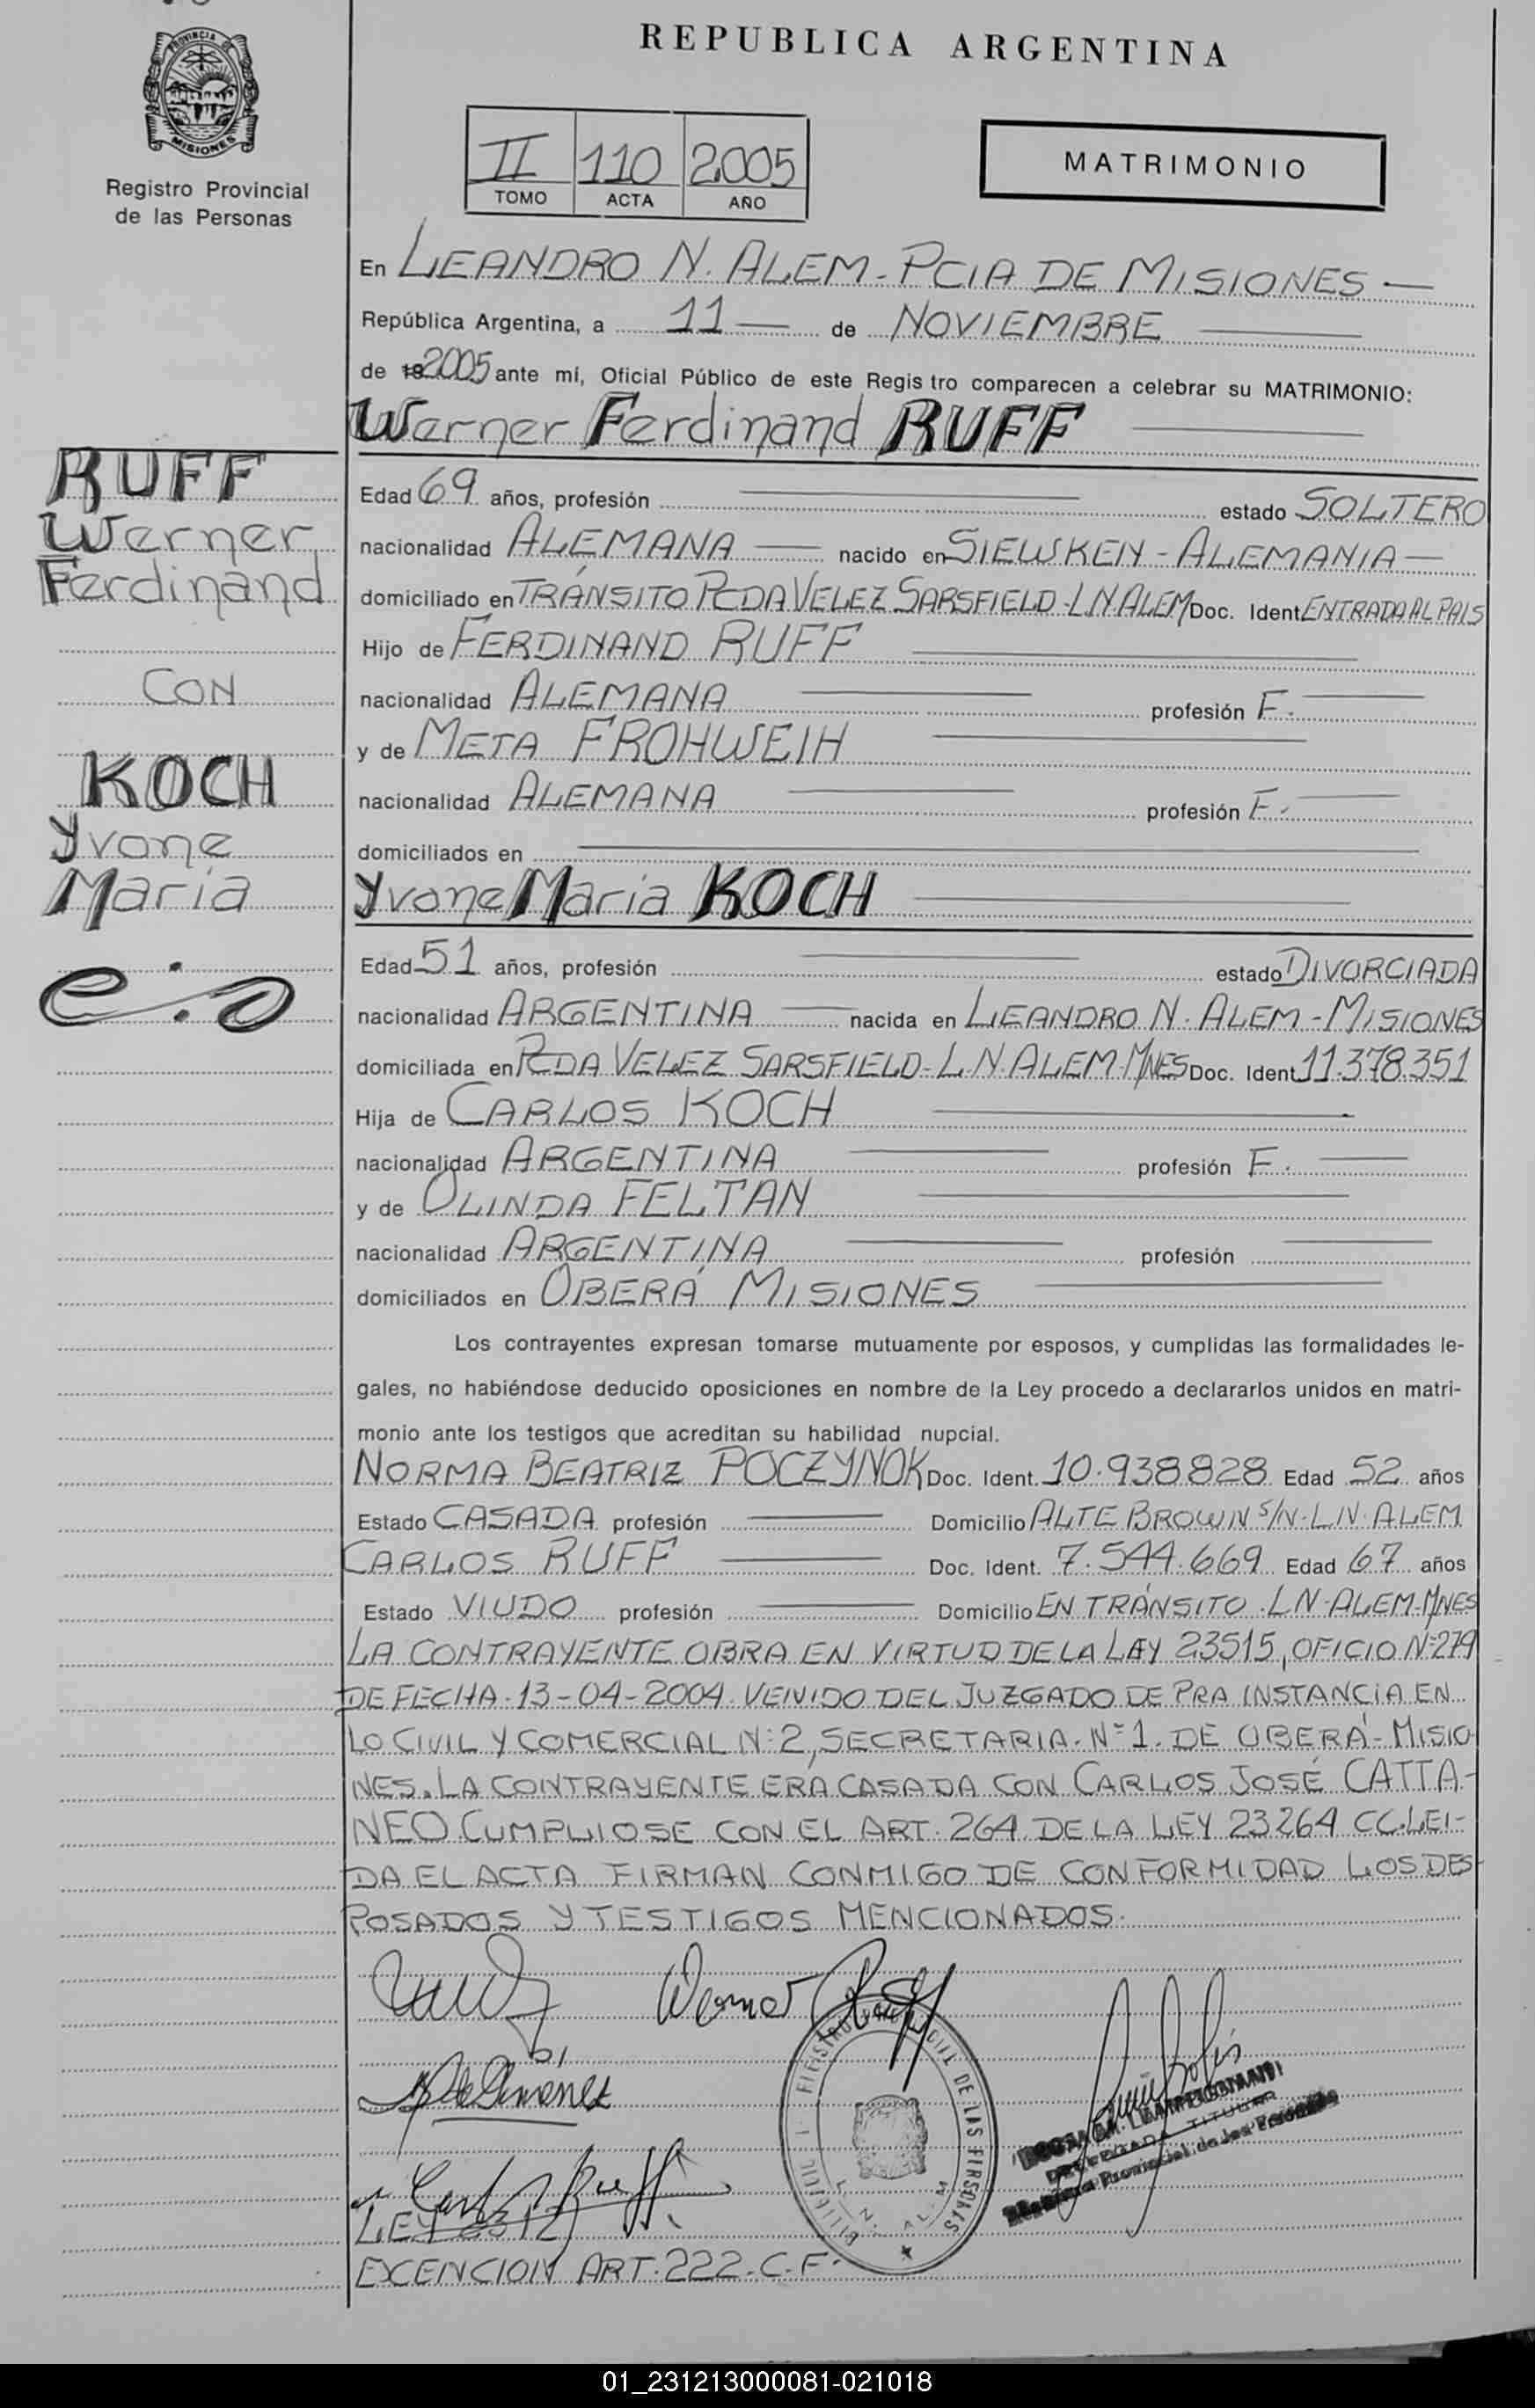 REPUBLICA ARGENTINA
PROVINCIA DE
MISIONES
Registro Provincial
de las Personas
II 110 2005
TOMO ACTA AÑO
MATRIMONIO
En LEANDRO N. ALEM - PCIA DE MISIONES —
República Argentina, a 11 — de NOVIEMBRE
de 19 2005 ante mí, Oficial Público de este Regis tro comparecen a celebrar su MATRIMONIO:
Werner Ferdinand RUFF
RUFF
Werner
Ferdinand
CON
KOCH
Yvone
Maria
Edad 69 años, profesión — estado SOLTERO
nacionalidad ALEMANA — nacido en SIEWSKEN - ALEMANIA —
domiciliado en TRÁNSITO PCDA VELEZ SARSFIELD - L.N.ALEM Doc. Ident. ENTRADA AL PAIS
Hijo de FERDINAND RUFF
nacionalidad ALEMANA — profesión F. —
y de META FROHWEIH
nacionalidad ALEMANA — profesión F. —
domiciliados en —
Yvone Maria KOCH
Edad 51 años, profesión — estado DIVORCIADA
nacionalidad ARGENTINA — nacida en LEANDRO N. ALEM - MISIONES
domiciliada en PCDA VELEZ SARSFIELD - L.N.ALEM - MNES Doc. Ident. 11.378.351
Hija de CARLOS KOCH
nacionalidad ARGENTINA — profesión F. —
y de OLINDA FELTAN
nacionalidad ARGENTINA — profesión —
domiciliados en OBERÁ MISIONES
Los contrayentes expresan tomarse mutuamente por esposos, y cumplidas las formalidades le-
gales, no habiéndose deducido oposiciones en nombre de la Ley procedo a declararlos unidos en matri-
monio ante los testigos que acreditan su habilidad nupcial.
NORMA BEATRIZ POCZYNOK Doc. Ident. 10.938828 Edad 52 años
Estado CASADA profesión — Domicilio ALTE BROWN S/N - L.N. ALEM
CARLOS RUFF — Doc. Ident. 7.544.669 Edad 67 años
Estado VIUDO profesión — Domicilio EN TRÁNSITO - L N - ALEM - MNES
LA CONTRAYENTE OBRA EN VIRTUD DE LA LEY 23515, OFICIO Nº 279
DE FECHA 13-04-2004 VENIDO DEL JUZGADO DE PRA INSTANCIA EN
LO CIVIL Y COMERCIAL Nº 2, SECRETARIA Nº 1 DE OBERÁ - MISIO
NES. LA CONTRAYENTE ERA CASADA CON CARLOS JOSÉ CATTA-
NEO. CUMPLIOSE CON EL ART. 264 DE LA LEY 23264 CC. LEI-
DA EL ACTA FIRMAN CONMIGO DE CONFORMIDAD LOS DES-
POSADOS Y TESTIGOS MENCIONADOS.
Werner Ruff
Carlos Ruff
EXCENCION ART. 222 - C.F.
01_231213000081-021018